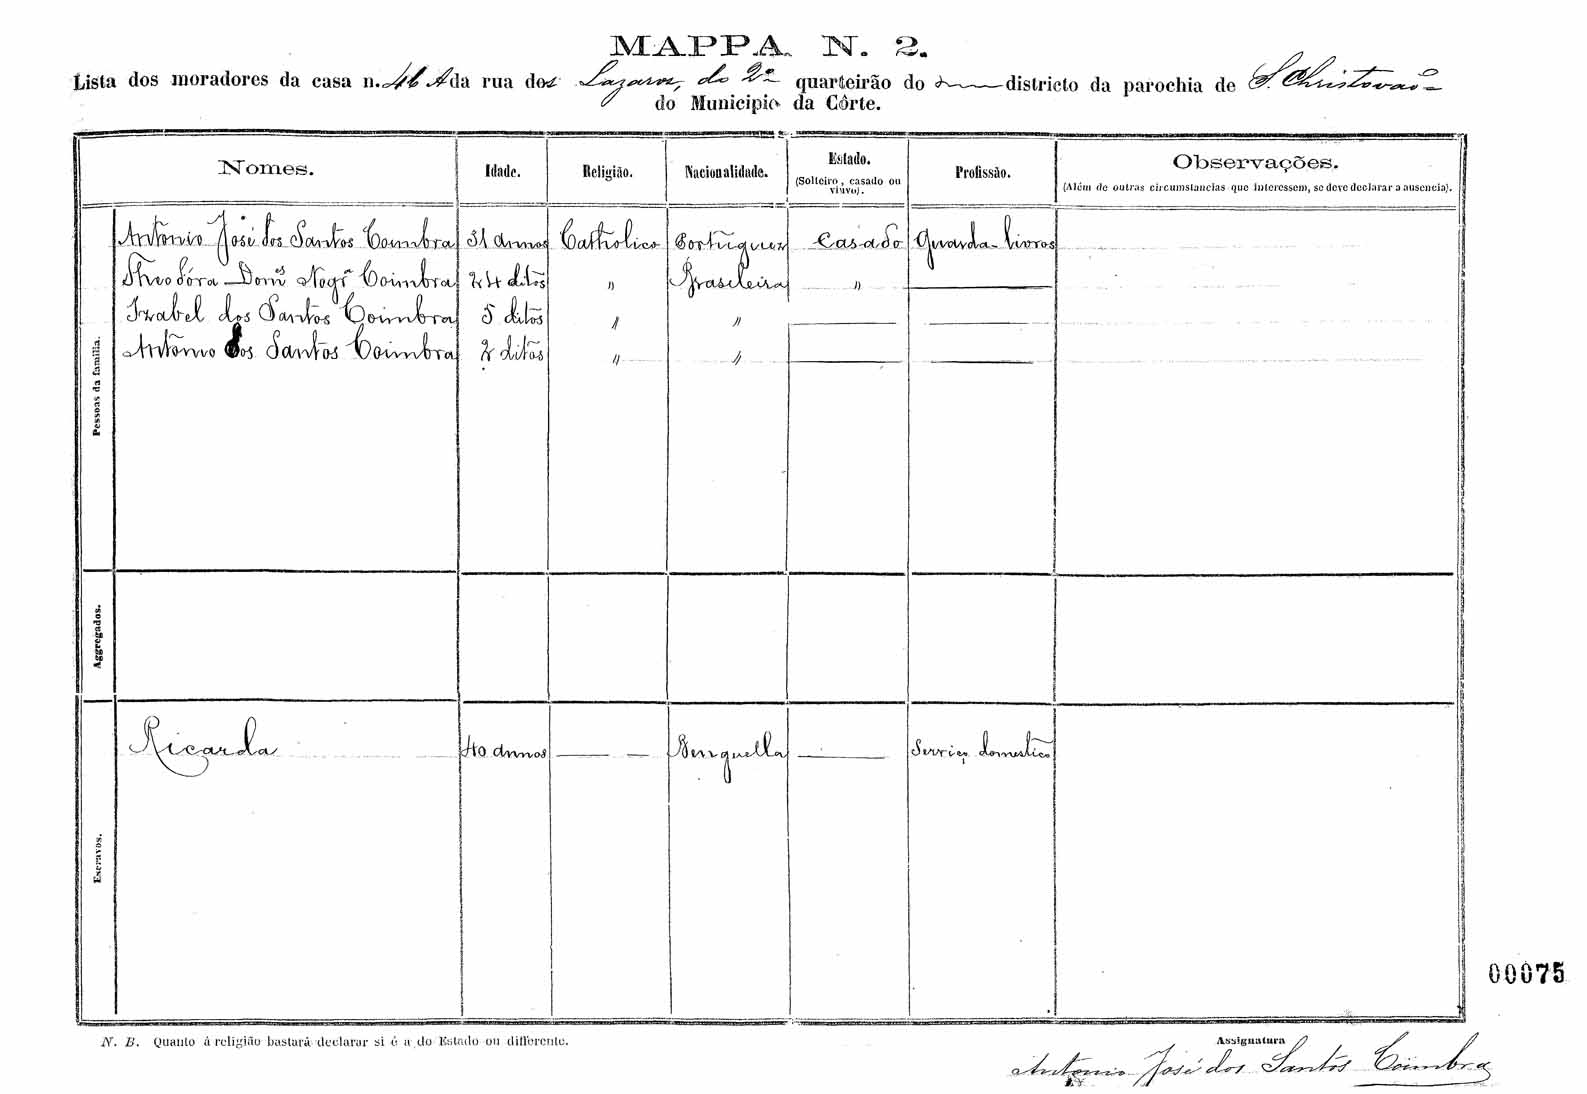 MAPPA N. 2.
Lista dos moradores da casa n. 46 A da rua dos Lazaros, do 2º quarteirão do districto da parochia de S. Christovaõ
do Municipio da Côrte.
Nomes. Idade. Religião. Nacionalidade. Estado. (Solteiro, casado ou viuvo). Profissão. Observações. (Além de outras circumstancias que interessem, se deve declarar a ausencia).
Pessoas da familia.
Antonio José dos Santos Coimbra 31 annos Catholico Portuguez Casado Guarda-livros
Theodóra Domˢ Nogʳ Coimbra 24 ditos " Brasileira "
Izabel dos Santos Coimbra 5 ditos " "
Antonio dos Santos Coimbra 2 ditos " "
Aggregados.
Escravos.
Ricarda 40 annos Benguella Serviç domestico
00075
N. B. Quanto á religião bastará declarar si é a do Estado ou differente.
Assignatura
Antonio José dos Santos Coimbra